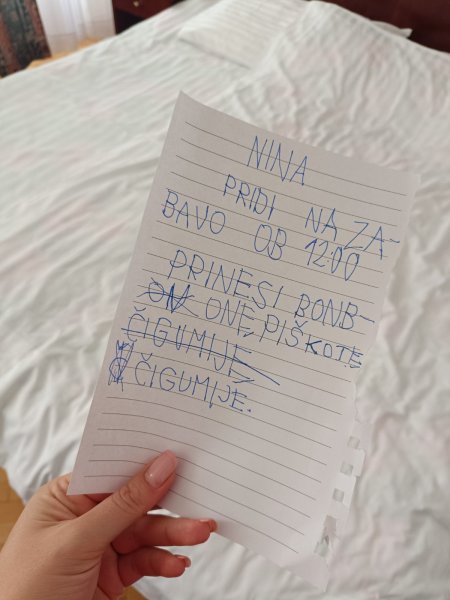 NINA
PRIDI NA ZA-
BAVO OB 12:00
PRINESI BONB-
ONE, PIŠKOTE
ČIGUMIJE
ČIGUMIJE.